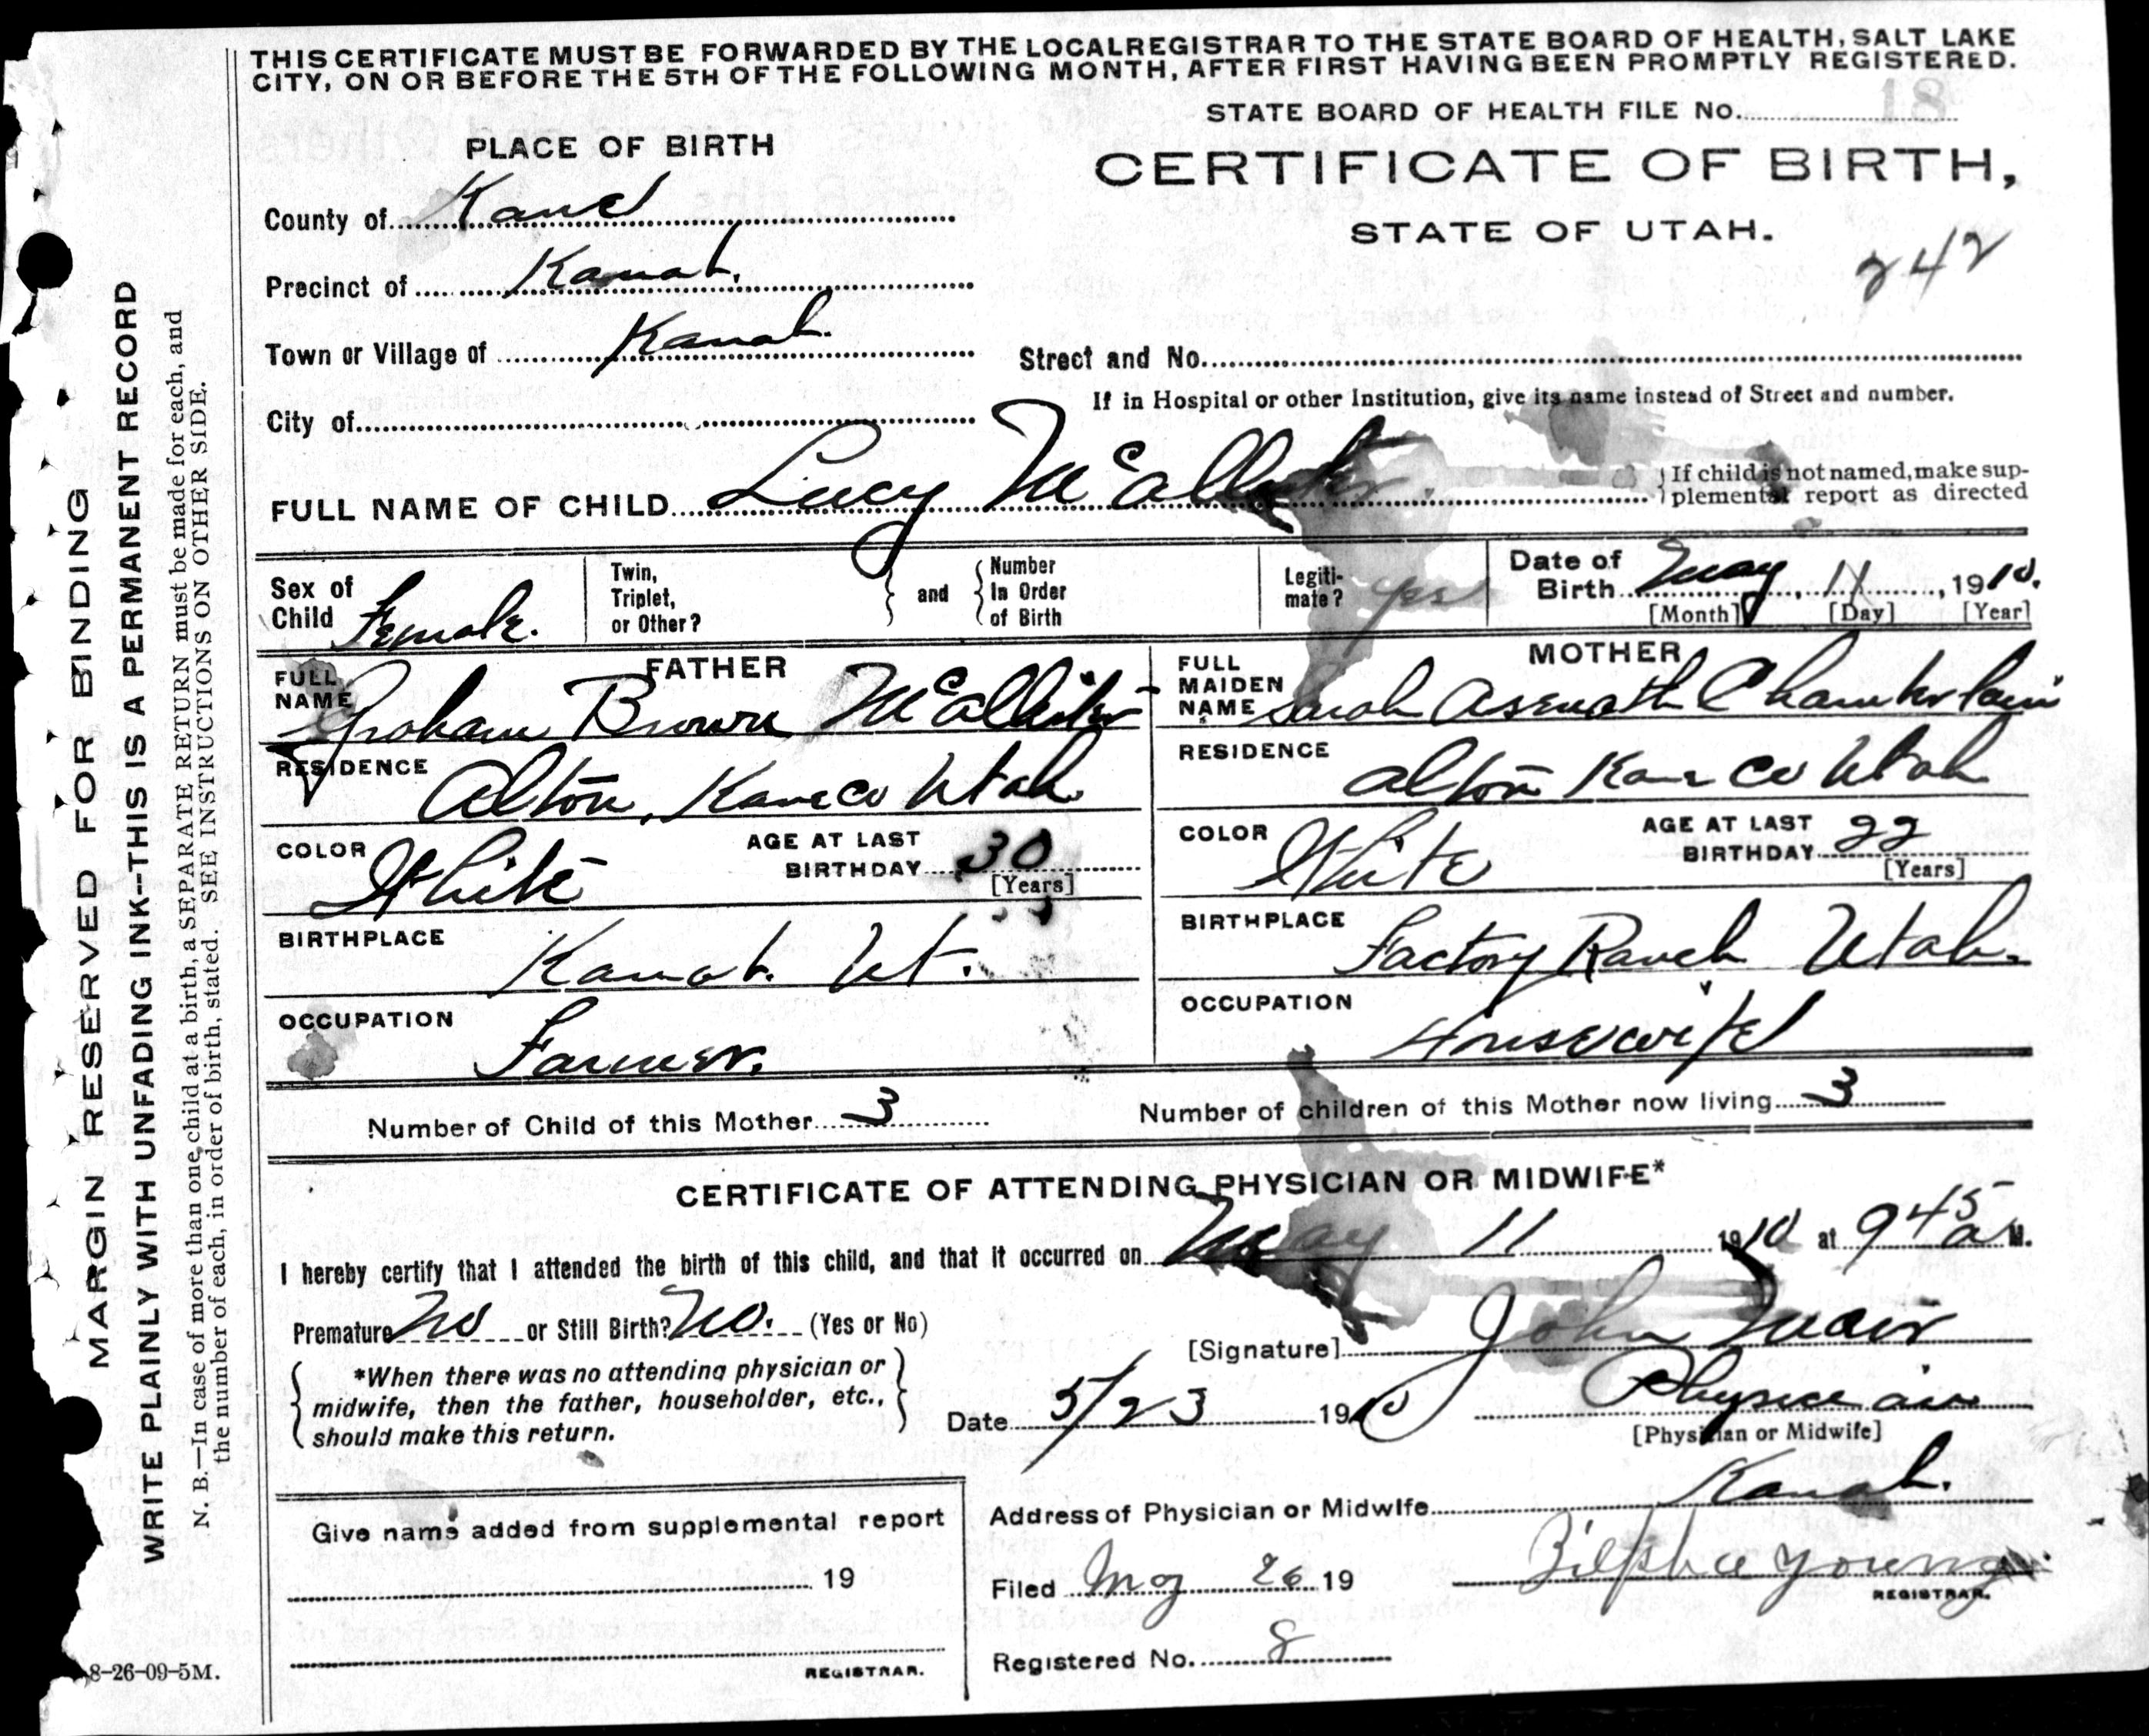 THIS CERTIFICATE MUST BE FORWARDED BY THE LOCAL REGISTRAR TO THE STATE BOARD OF HEALTH, SALT LAKE
CITY, ON OR BEFORE THE 5TH OF THE FOLLOWING MONTH, AFTER FIRST HAVING BEEN PROMPTLY REGISTERED.
STATE BOARD OF HEALTH FILE No. 18
PLACE OF BIRTH
CERTIFICATE OF BIRTH,
STATE OF UTAH.
242
County of Kane
Precinct of Kanab.
Town or Village of Kanab.
Street and No.
If in Hospital or other Institution, give its name instead of Street and number.
City of
FULL NAME OF CHILD Lucy McAllister.
If child is not named, make sup-
plemental report as directed
Sex of Child Female.
Twin, Triplet, or Other?
and
Number In Order of Birth
Legiti-mate? yes
Date of Birth May 11, 1910.
[Month] [Day] [Year]
FATHER
FULL NAME Graham Brown McAllister
RESIDENCE Alton, Kane Co Utah
COLOR White
AGE AT LAST BIRTHDAY 30
[Years]
BIRTHPLACE Kanab. Ut.
OCCUPATION Farmer.
MOTHER
FULL MAIDEN NAME Sarah Asenath Chamberlain
RESIDENCE Alton Kane Co Utah
COLOR White
AGE AT LAST BIRTHDAY 22
[Years]
BIRTHPLACE Factory Ranch Utah.
OCCUPATION Housewife
Number of Child of this Mother 3
Number of children of this Mother now living 3
CERTIFICATE OF ATTENDING PHYSICIAN OR MIDWIFE*
I hereby certify that I attended the birth of this child, and that it occurred on May 11 1910 at 9 45 a M.
Premature No or Still Birth? No. (Yes or No)
[Signature] John Muir
*When there was no attending physician or
midwife, then the father, householder, etc.,
should make this return.
Date 5/23 1910
Physician
[Physician or Midwife]
Address of Physician or Midwife Kanab.
Give name added from supplemental report
19
REGISTRAR.
Filed May 26 19
Zilpha Young
REGISTRAR.
Registered No. 8
8-26-09-5M.
MARGIN RESERVED FOR BINDING
WRITE PLAINLY WITH UNFADING INK--THIS IS A PERMANENT RECORD
N. B.—In case of more than one child at a birth, a SEPARATE RETURN must be made for each, and
the number of each, in order of birth, stated. SEE INSTRUCTIONS ON OTHER SIDE.